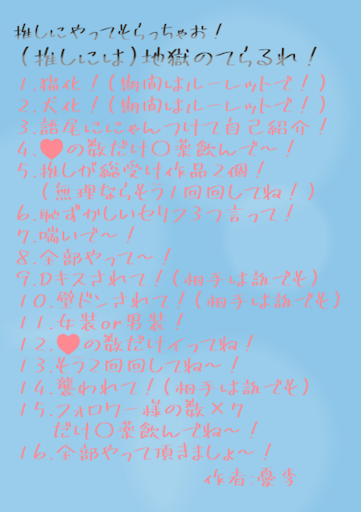 推しにやってもらっちゃお!
(推しには)地獄のてらるれ!
1.猫化!(期間はルーレットで!)
2.犬化!(期間はルーレットで!)
3.語尾ににゃんつけて自己紹介!
4.❤の数だけ〇薬飲んで〜!
5.推しが総受け作品2個!
(無理ならもう1回回してね!)
6.恥ずかしいセリフ3つ言って!
7.喘いで〜!
8.全部やって〜!
9.Dキスされて!(相手は誰でも)
10.壁ドンされて!(相手は誰でも)
11.女装or男装!
12.❤の数だけイってね!
13.もう2回回してね〜!
14.襲われて!(相手は誰でも)
15.フォロワー様の数×7
だけ〇薬飲んでね〜!
16.全部やって頂きましょ〜!
作者:憂